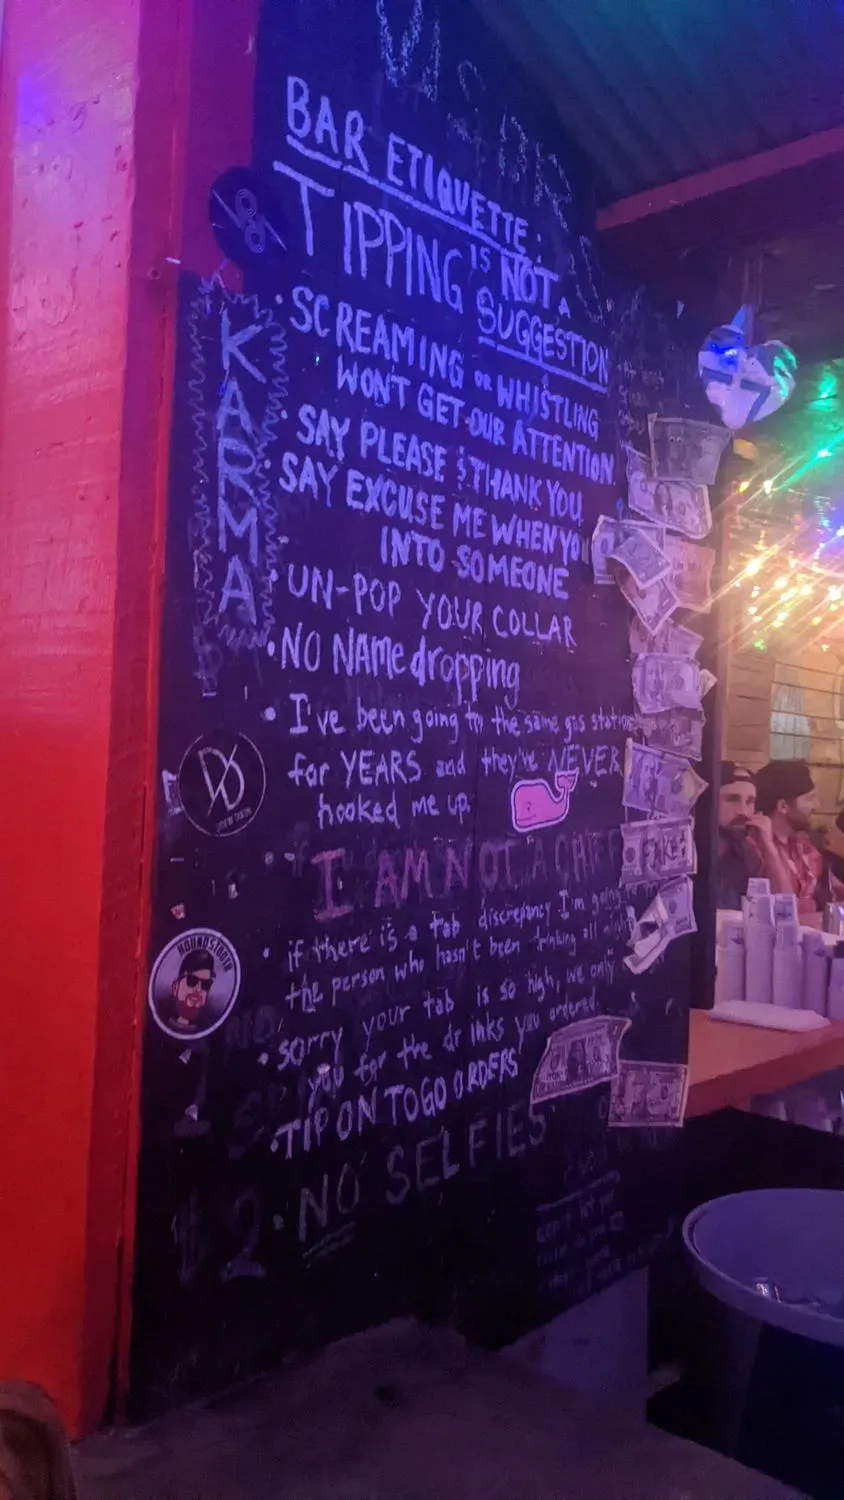 BAR ETIQUETTE:
TIPPING IS NOT A
SUGGESTION
KARMA
• SCREAMING OR WHISTLING
WON'T GET OUR ATTENTION
• SAY PLEASE & THANK YOU
• SAY EXCUSE ME WHEN YOU
INTO SOMEONE
• UN-POP YOUR COLLAR
• NO NAMEdropping
• I've been going to the same gas station
for YEARS and they've NEVER
hooked me up.
I AM NOT A CHEF
• if there is a tab discrepancy I'm going
the person who hasn't been drinking all night
• sorry your tab is so high, we only
you for the drinks you ordered.
• TIP ON TOGO ORDERS
• NO SELFIES
HOUNDSTOOTH
FAKE